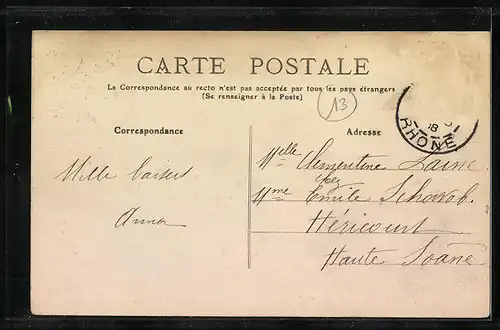 CARTE POSTALE
La Correspondance au recto n'est pas acceptée par tous les pays étrangers
(Se renseigner à la Poste)
13
08
RHÔNE
Correspondance
Adresse
Mille baisers
Anna
Melle Clementine
chez
Mme Emile Schwob
Héricourt
Haute Soâne